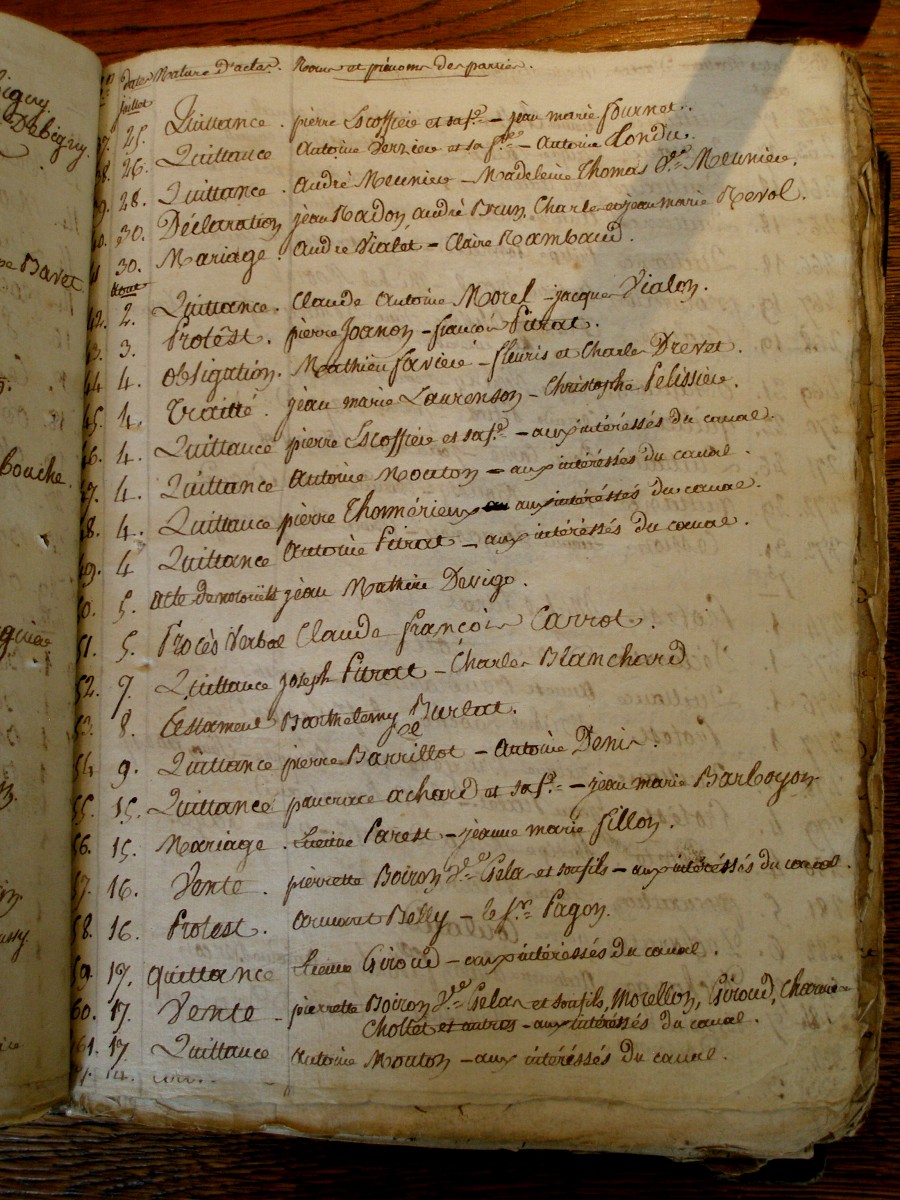 igny
Debigny.
pe Bavet
Bouche.
dates Nature d'actes. Noms et prénoms des parties.
juillet
37. 25. Quittance. pierre Escoffier et sa fe. - jean marie fournet.
38. 26. Quittance Antoine Verziere et sa fe. - Antoine Tondu.
39. 28. Quittance. André Meunier - Madeleine Thomas Ve. Meuniere.
40. 30. Déclaration jean Radon, andré Brun, Charle et jean marie Revol.
41 30. Mariage. André Vialet - Claire Rambaud.
Aout
42. 2. Quittance. Claude Antoine Morel - jacques Vialon.
43. 3. Protêst. pierre Joanon - françois Pitrat.
44 4. obligation. Mathieu favier - fleuris et Charle Drevet.
45. 4. Traitté. jean marie Laurenson - Christophe Pelissier.
46. 4. Quittance pierre Escoffier et sa fe. - aux intéréssés du canal.
47. 4. Quittance Antoine Mouton - aux intéréssés du canal.
48. 4. Quittance pierre Thomérieux aux intéréssés du canal.
49. 4 Quittance Antoine Pitrat - aux intéréssés du canal.
50. 5. Acte de notoriété jean Mathieu Devigo.
51. 5. Procès Verbal Claude françois Carrot.
52. 7. Quittance joseph Pitrat - Charles Blanchard
53. 8. Testament Barthelemy Burlat.
54 9. Quittance pierre Barrillot - Antoine Denis.
55. 15. Quittance pancrace achard et sa fe. - jean marie Barboyon.
56. 15. Mariage. Etienne Parest - jeanne marie fillon.
57. 16. Vente. pierrette Boiron Ve. Gelas et son fils - aux intéréssés du canal.
58. 16. Protest. Belly - le sr. Pagon.
59. 17. quittance Etienne Giroud - aux intéréssés du canal.
60. 17. Vente - pierrette Boiron Ve. Gelas et son fils, Morellon, Giroud,
Chollet et autres - aux intéréssés du canal.
61. 17. Quittance Antoine Mouton - aux intéréssés du canal.